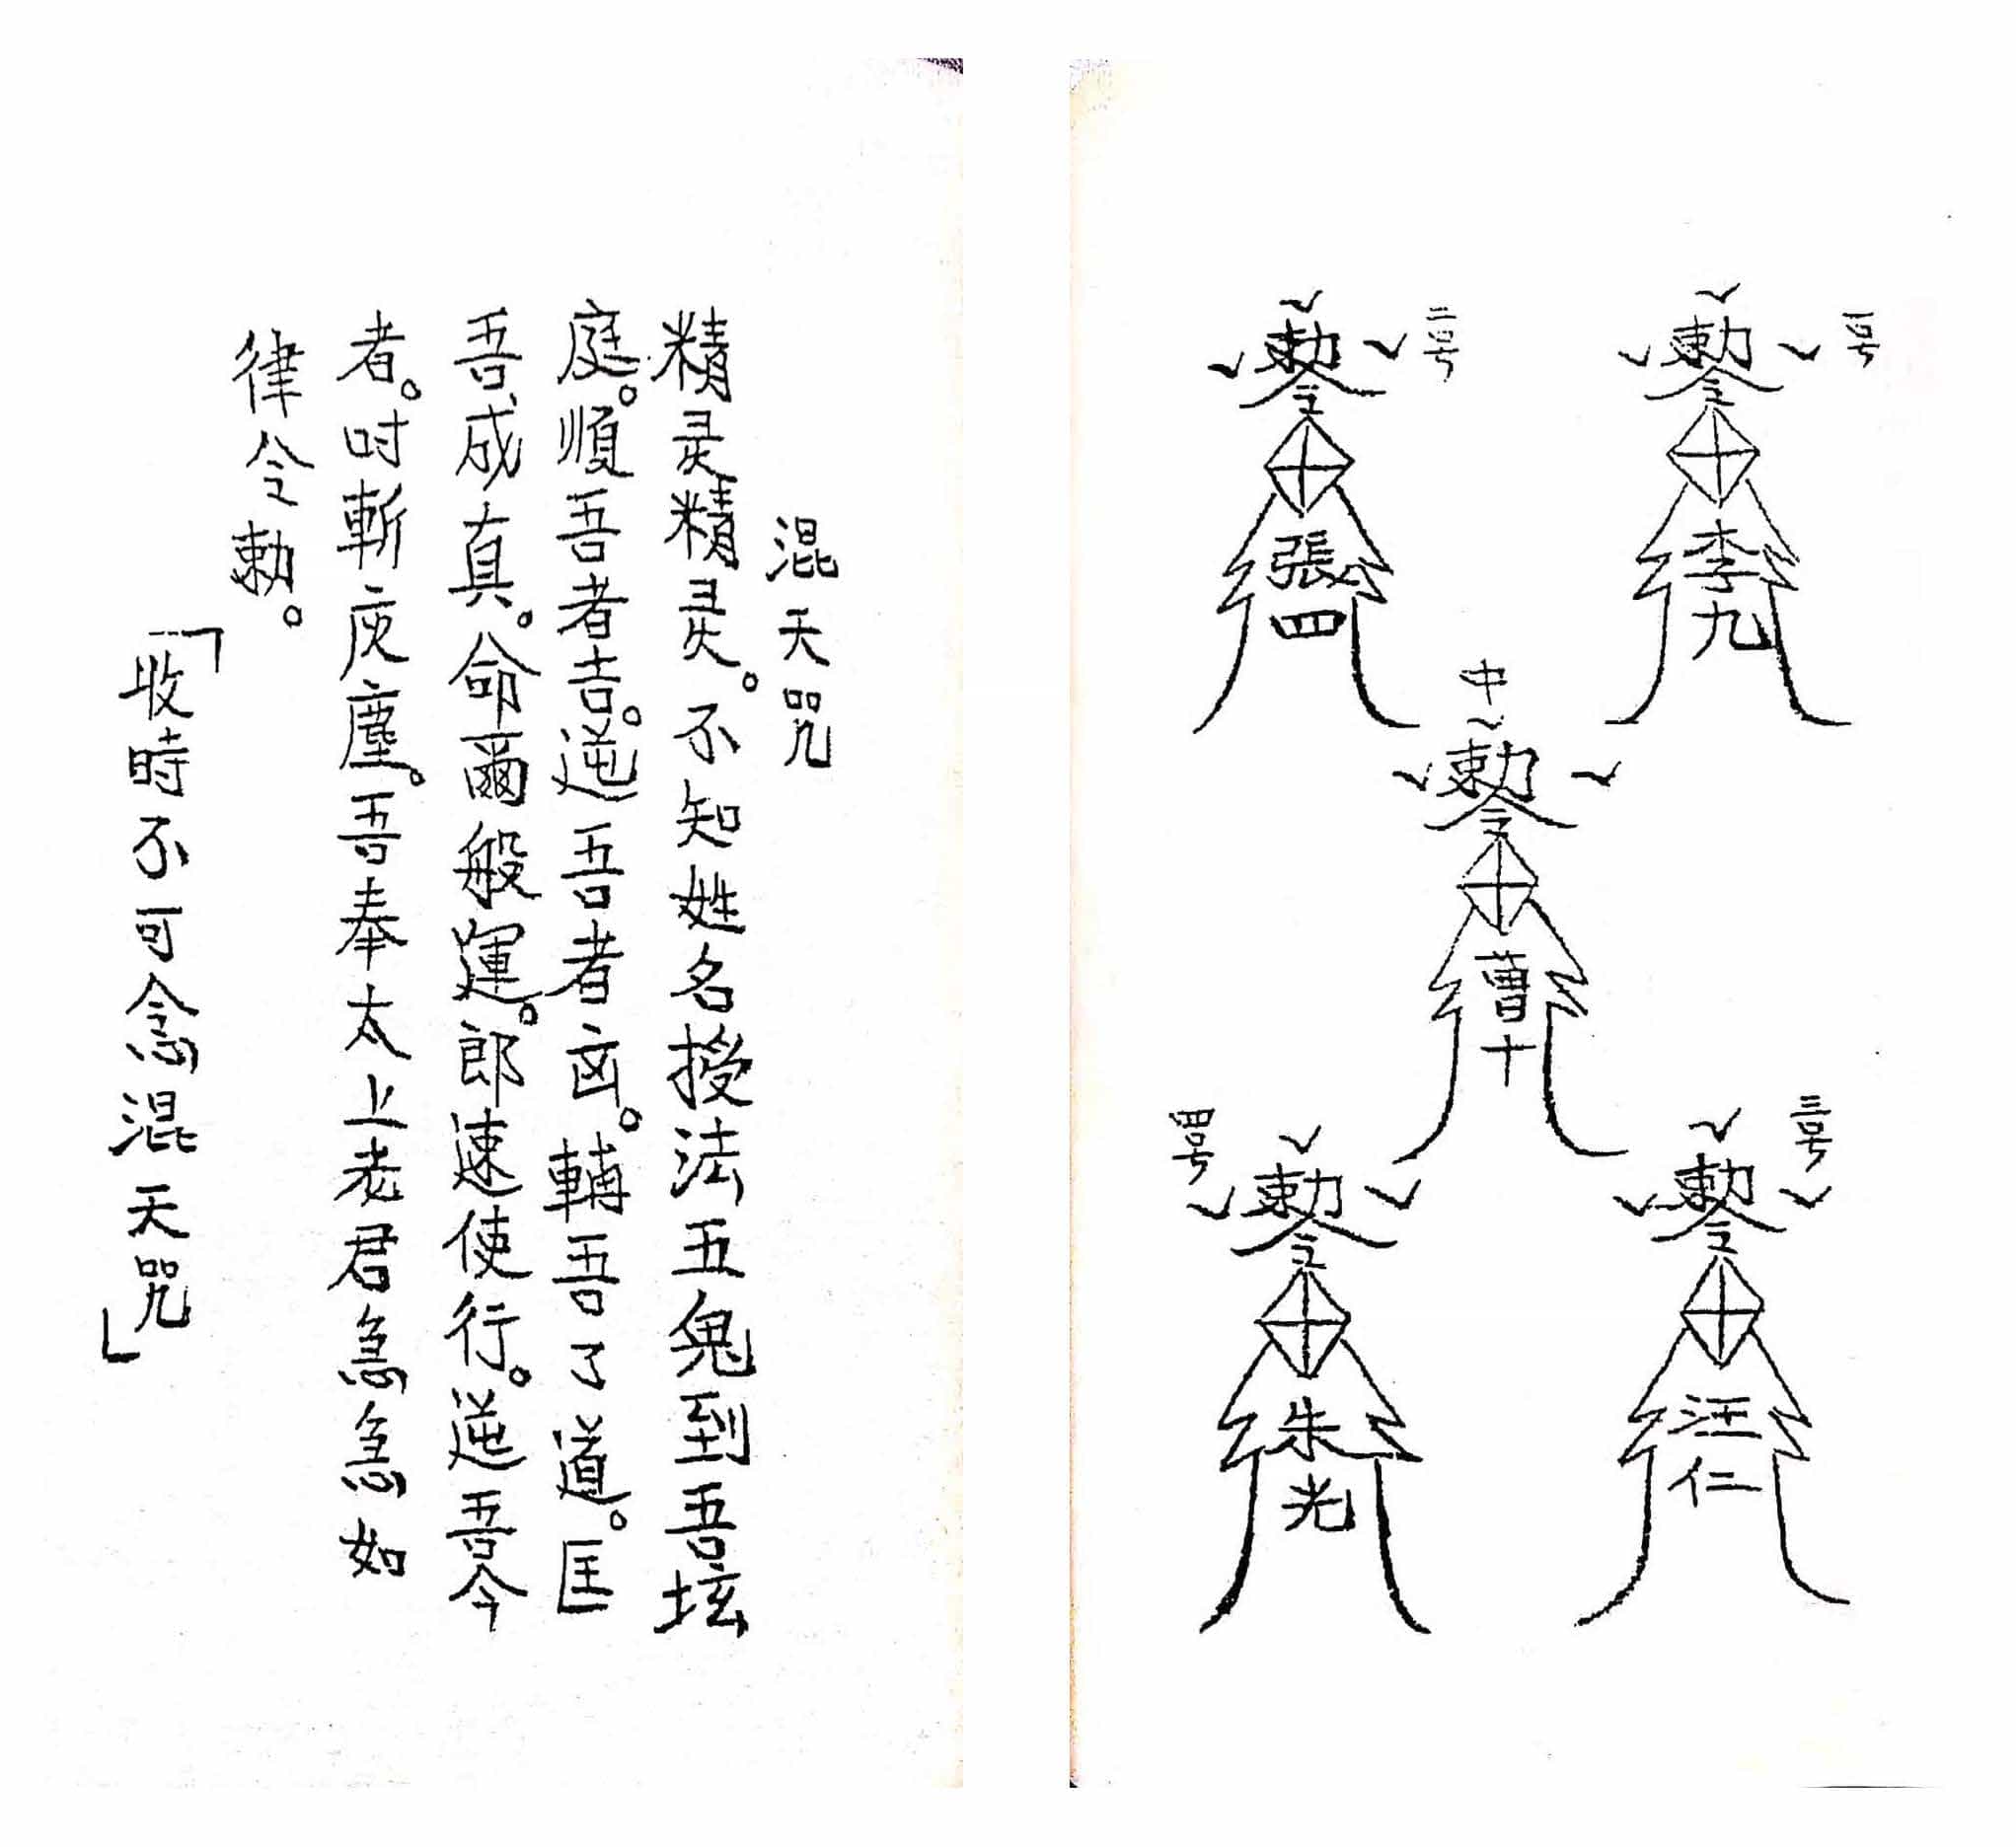 一号
勅令
李九
二号
勅令
張四
中
勅令
曹十
三号
勅令
汪仁
四号
勅令
朱光
混天咒
精灵精灵。不知姓名授法五鬼到吾坛
庭。順吾者吉。逆吾者凶。輔吾了道。匡
吾成真。命爾般運。郎速使行。逆吾今
者。吋斬灰塵。吾奉太上老君急急如
律令勅。
「收時不可念混天咒」